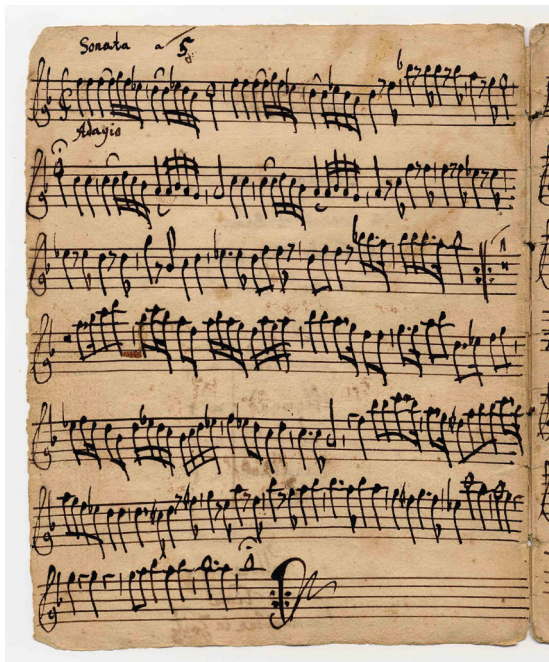 Sonata a 5
Adagio